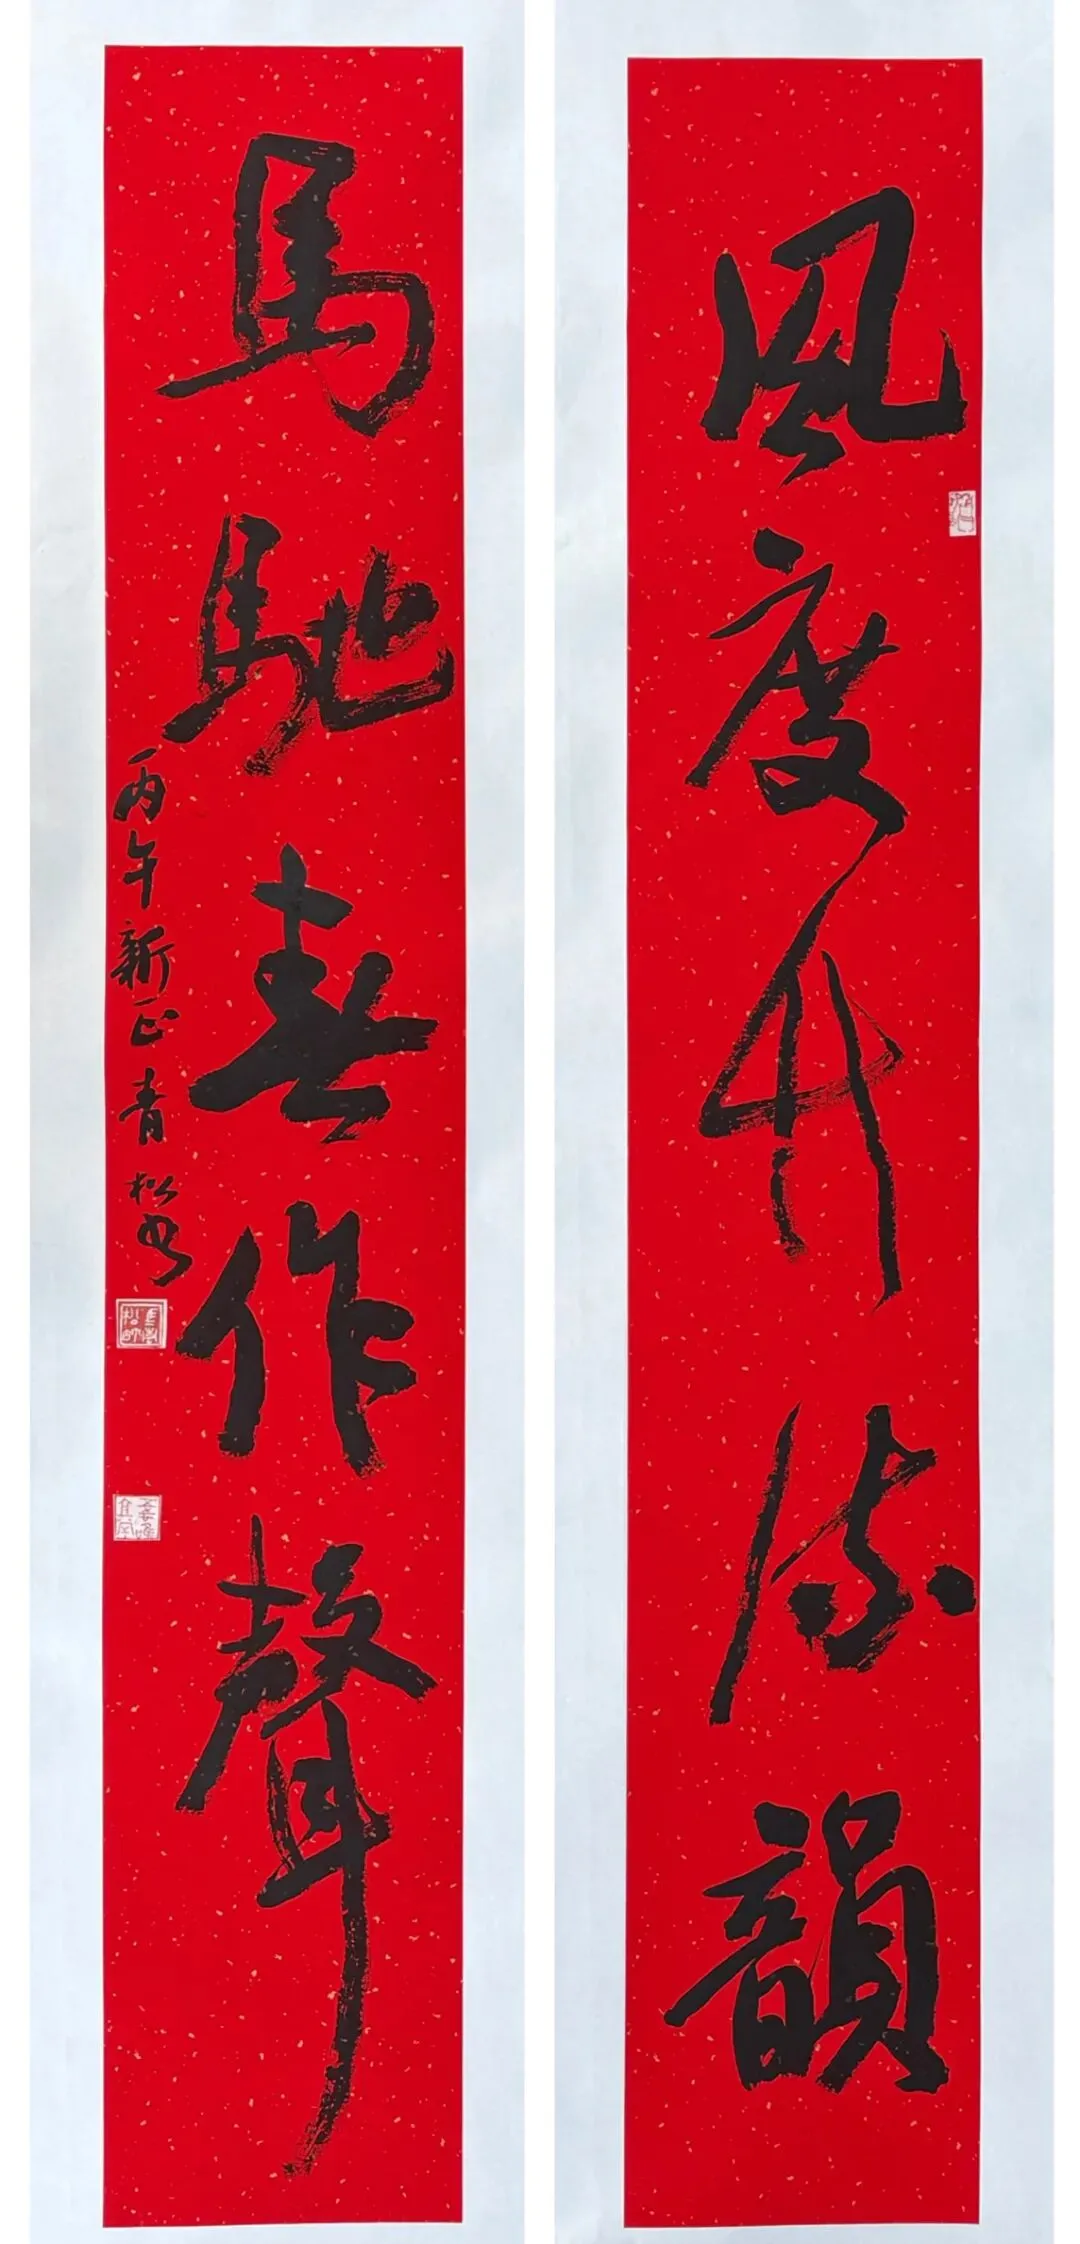 風度竹流韻
馬馳春作聲
丙午新正青松書